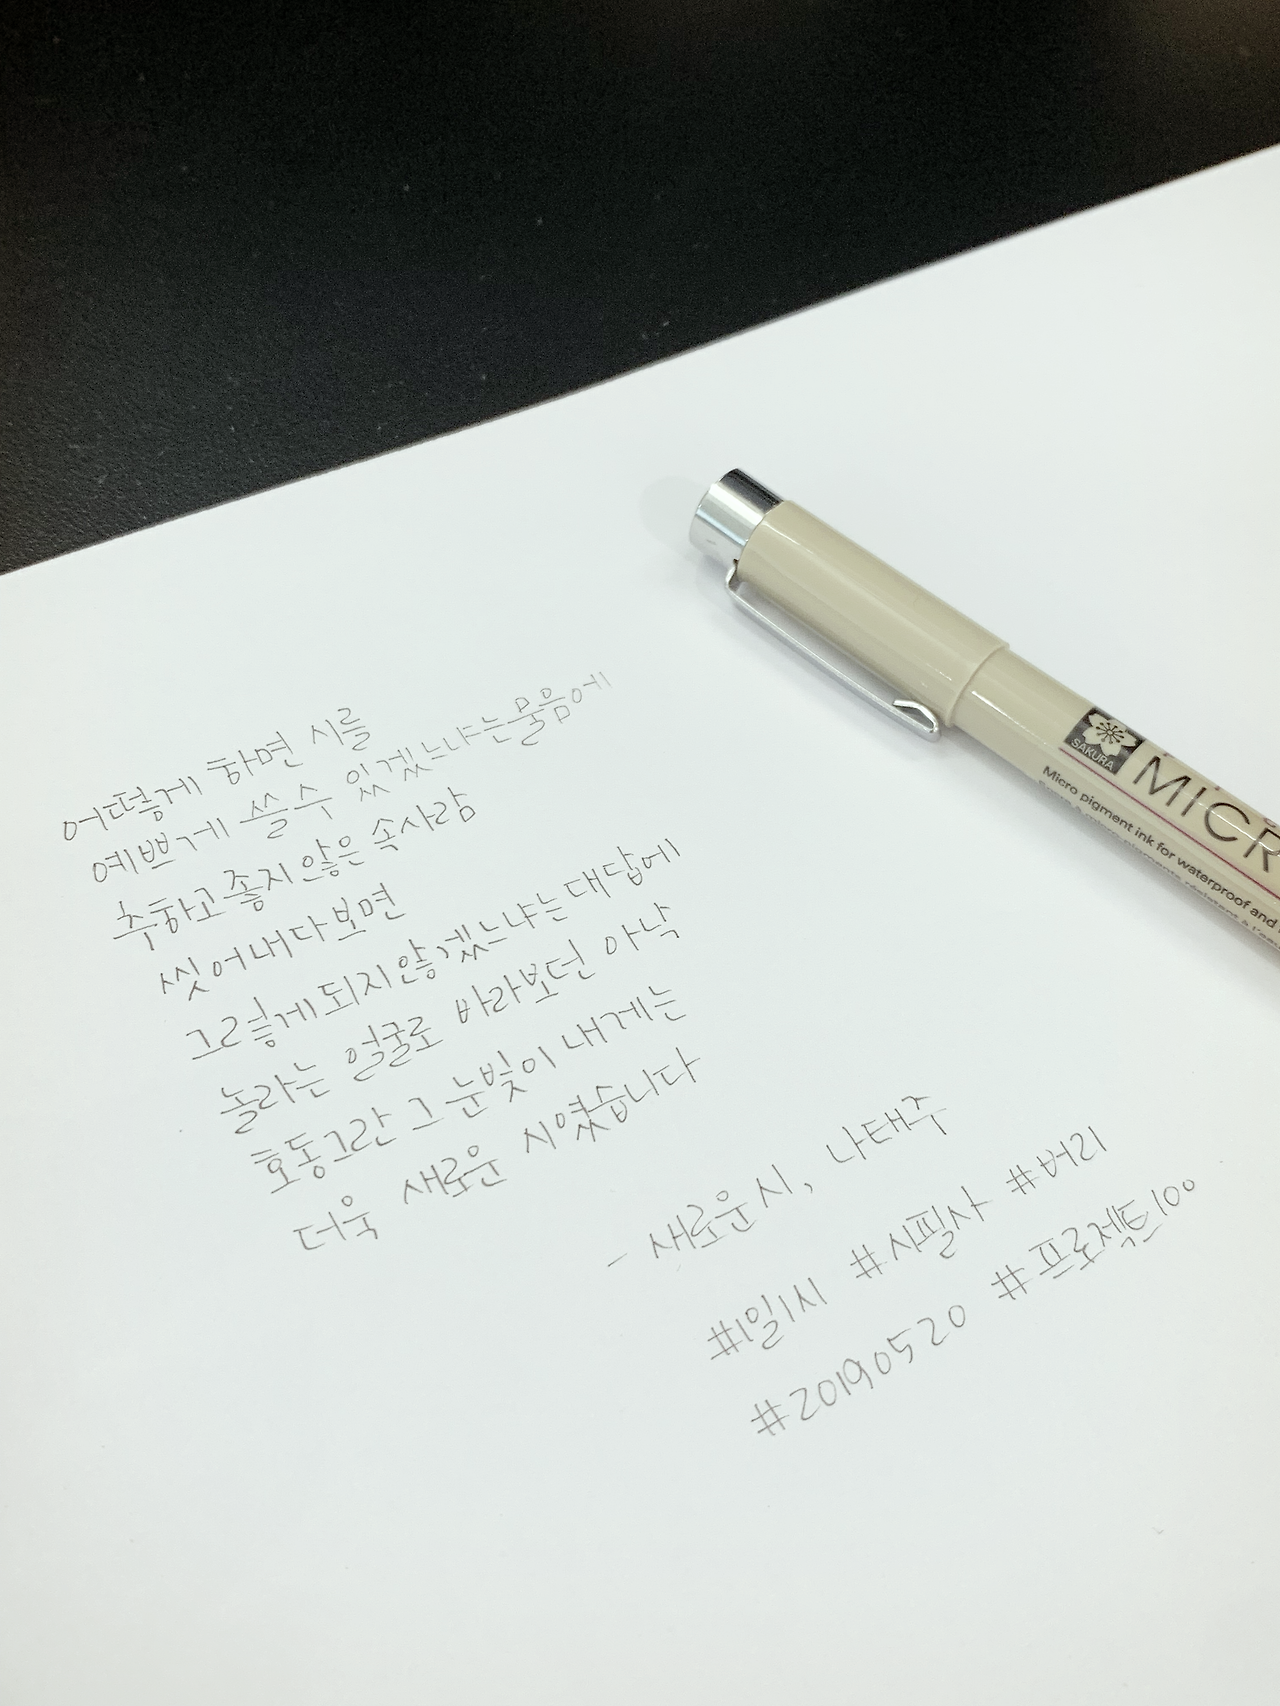 어떻게 하면 시를
예쁘게 쓸 수 있겠느냐는 물음에
추하고 좋지 않은 속사람
씻어내다 보면
그렇게 되지 않겠느냐는 대답에
놀라는 얼굴로 바라보던 아낙
호동그란 그 눈빛이 내게는
더욱 새로운 시였습니다
- 새로운 시, 나태주
#1일1시 #시필사 #버리
#20190520 #프로젝트100
SAKURA
MICR
Micro pigment ink for waterproof and